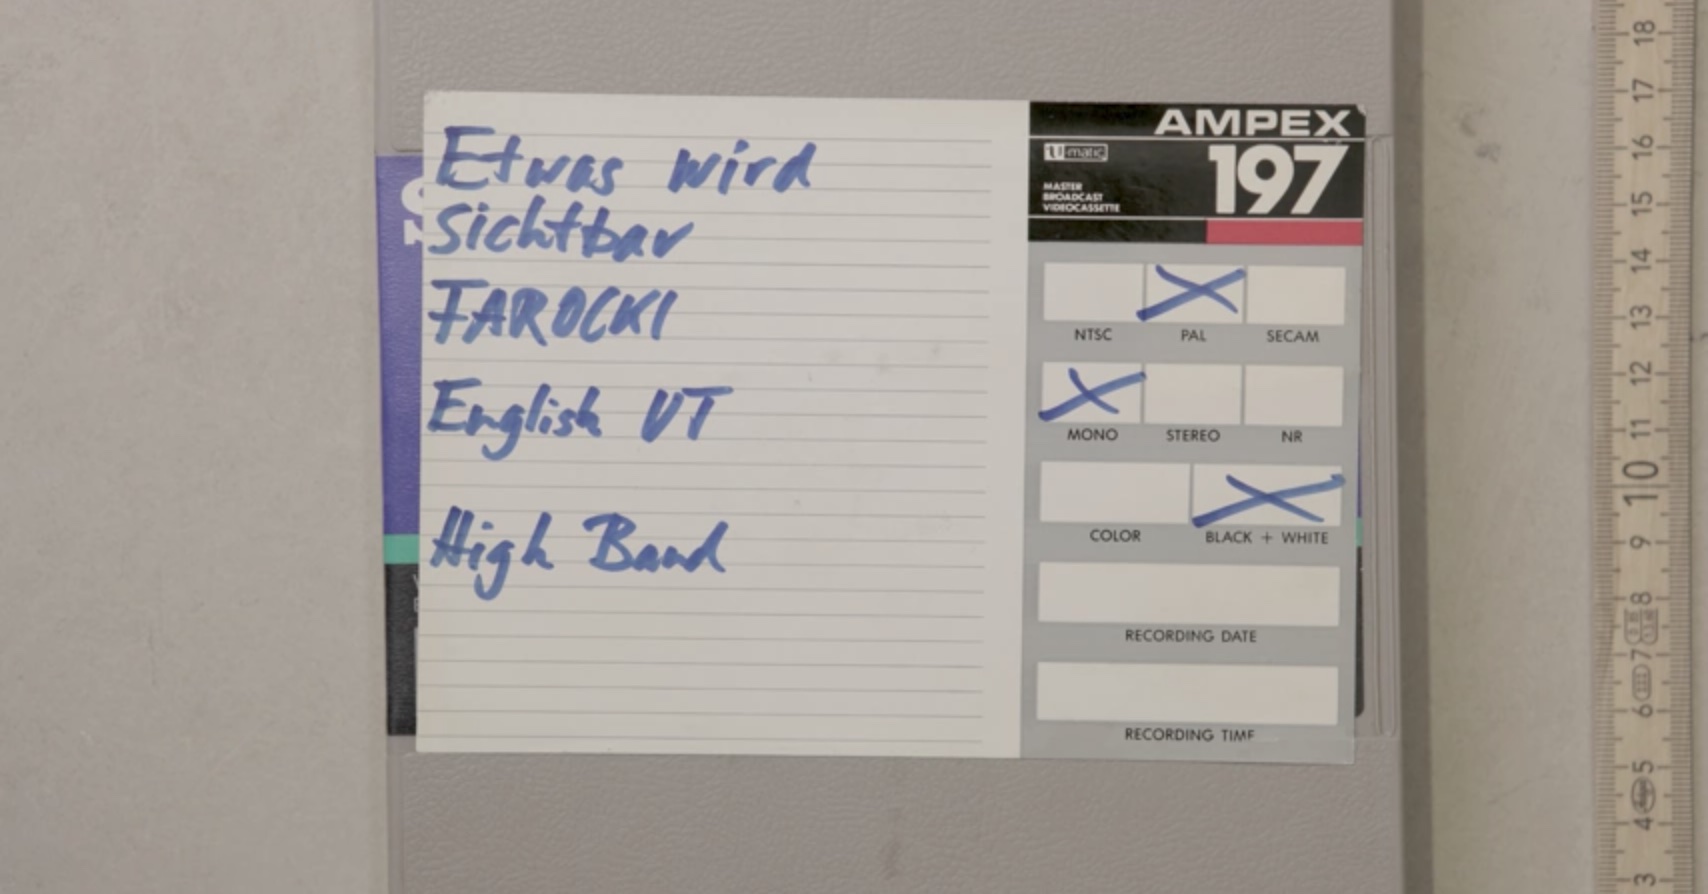 Etwas wird
Sichtbar
FAROCKI
English UT
High Band
AMPEX
U matic
197
MASTER
BROADCAST
VIDEOCASSETTE
NTSC PAL SECAM
MONO STEREO NR
COLOR BLACK + WHITE
RECORDING DATE
RECORDING TIME
18
17
16
15
14
13
12
11
10
9
8
7
6
5
4
3